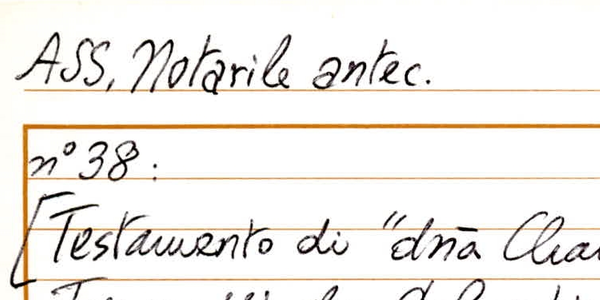 ASS, Notarile antec.
n° 38:
[Testamento di "dnā